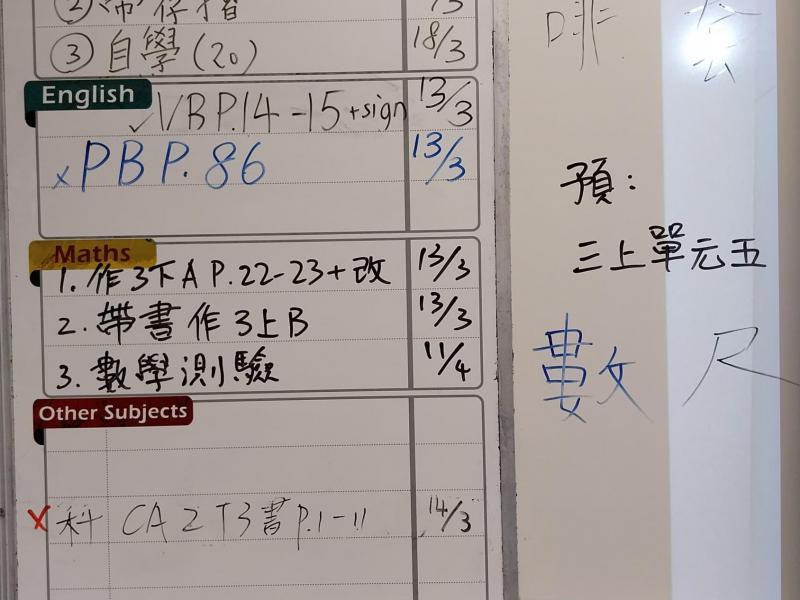 ③ 自學(20) 18/3
English
✓ VB P.14-15 +sign 13/3
x PB P.86 13/3
Maths
1. 作3下A P.22-23+改 13/3
2. 帶書作3上B 13/3
3. 數學測驗 11/4
Other Subjects
x 科 CA 2 T3書 P.1-11 14/3
啡
預:
三上單元五
數 尺